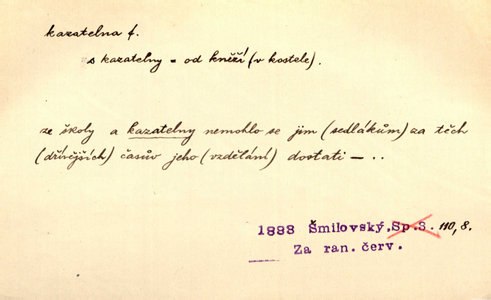 kazatelna f.
s kazatelny = od kněží (v kostele).
ze školy a kazatelny nemohlo se jim (sedlákům) za těch
(dřívějších) časův jeho (vzdělání) dostati – ..
1888 Šmilovský, Sp. S. 110, 8.
Za ran. červ.